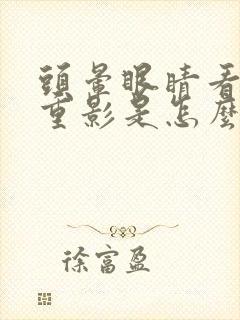 頭暈眼睛看
重影是怎麼
徐富盈